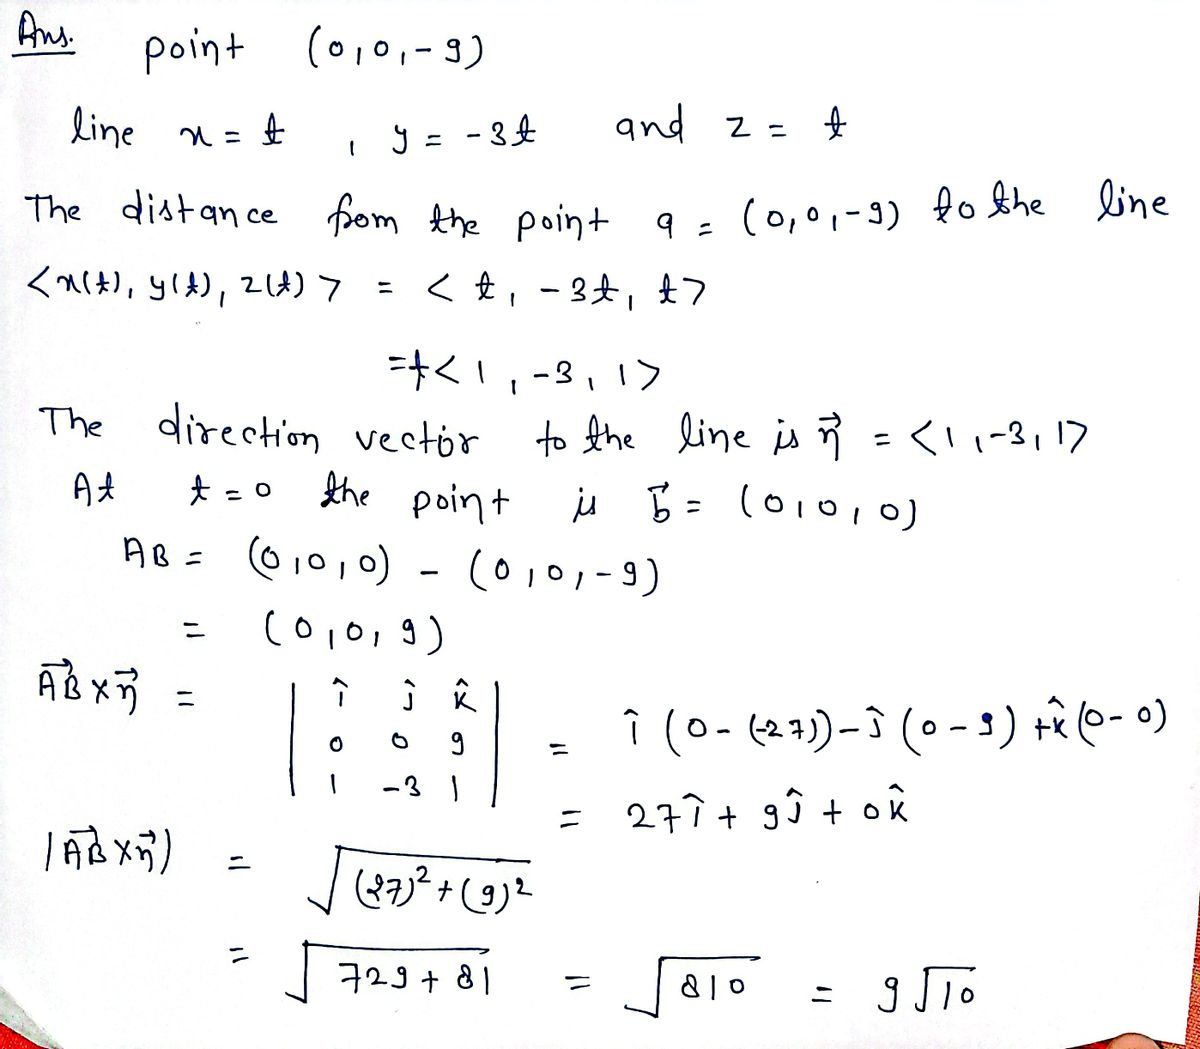 Ans. point (0,0,-9)
line x = t , y = -3t and z = t
The distance from the point q = (0,0,-9) to the line
<x(t), y(t), z(t)> = < t, -3t, t>
=t< 1, -3, 1>
The direction vector to the line is η⃗ = <1,-3,1>
At t = 0 the point is b⃗ = (0,0,0)
AB = (0,0,0) - (0,0,-9)
= (0,0,9)
A⃗B × η⃗ = | î ĵ k̂ | = î (0-(-27)) - ĵ (0-9) + k̂ (0-0)
| 0 0 9 |
| 1 -3 1 |
= 27î + 9ĵ + 0k̂
|A⃗B × η⃗) = √((27)² + (9)²)
= √(729 + 81) = √810 = 9√10